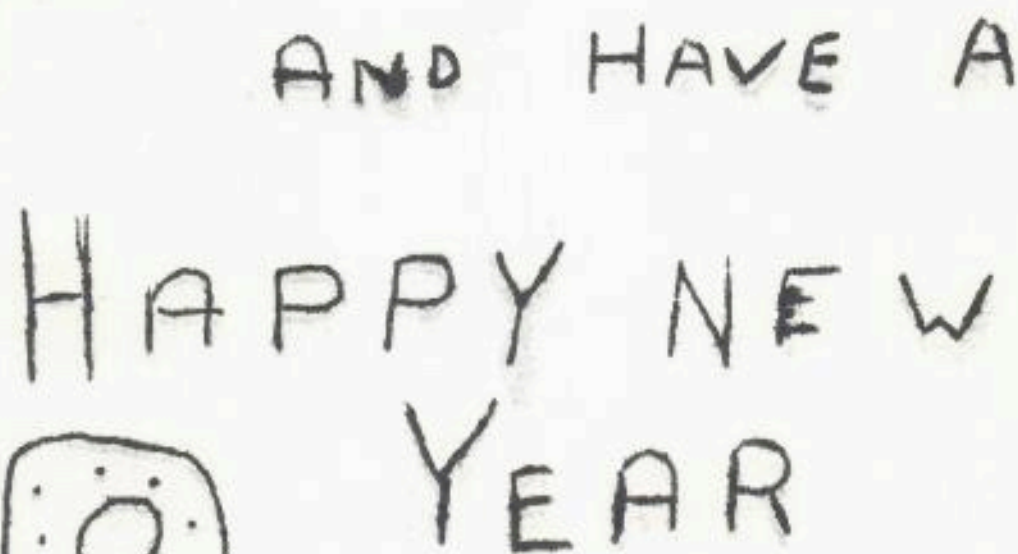 AND HAVE A
HAPPY NEW
YEAR